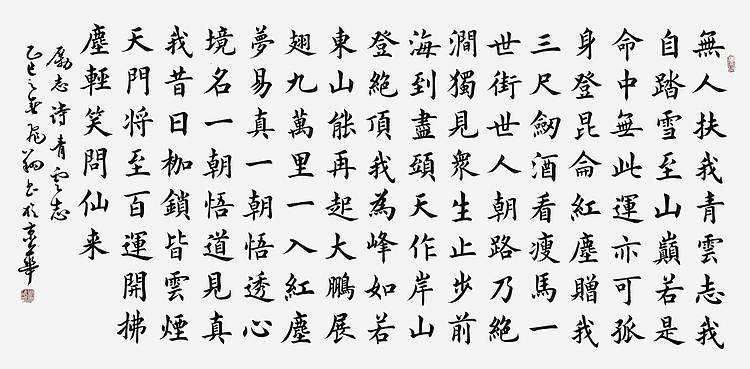 無人扶我青雲志我
自踏雪至山巔若是
命中無此運亦可孤
身登昆侖紅塵贈我
三尺劒酒看瘦馬一
世街世人朝路乃絕
澗獨見衆生止步前
海到盡頭天作岸山
登絕頂我為峰如若
東山能再起大鵬展
翅九萬里一入紅塵
夢易真一朝悟透心
境名一朝悟道見真
我昔日枷鎖皆雲煙
天門将至百運開拂
塵輕笑問仙来
勵志詩青雲志
乙巳之春飛翔書於京華